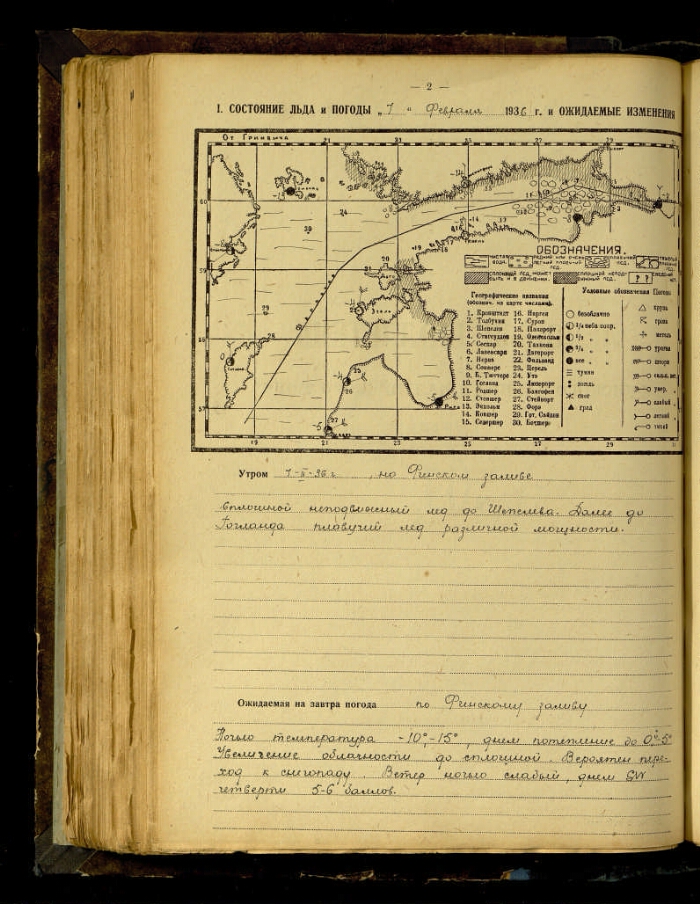 — 2 —
I. СОСТОЯНИЕ ЛЬДА и ПОГОДЫ „7" Февраля 1936 г. и ОЖИДАЕМЫЕ ИЗМЕНЕНИЯ
От Гринвича
ОБОЗНАЧЕНИЯ.
Географические названия
(обознач. на карте числами).
1. Кронштадт 16. Нарген
2. Толбухин 17. Суроп
3. Шепелев 18. Пакерорт
4. Стирсудден 19. Оденсхольм
5. Сескар 20. Тахкона
6. Лавенсари 21. Дагерорт
7. Нерва 22. Фильзанд
8. Соммерс 23. Церель
9. Б. Тютерс 24. Утэ
10. Гогланд 25. Люзерорт
11. Родшер 26. Бакгофен
12. Стеншер 27. Стейнорт
13. Экхольм 28. Форэ
14. Кокшер 29. Гот. Сандэн
15. Седершер 30. Богшер
Условные обозначения Погоды
безоблачно
¼ неба покр.
½ „ „
¾ „ „
все „ „
туман
дождь
снег
град
крупа
гроза
метель
ураган
шторм
сильн. вет.
умер. „
слабый „
легкий „
тихий
Утром 7-II-36 г. на Финском заливе
Сплошной неподвижный лед до Шепелева. Далее до
Гогланда плавучий лед различной мощности.
Ожидаемая на завтра погода по Финскому заливу
Ночью температура -10°,-15°, днем потепление до 0°,-5°
Увеличение облачности до сплошной. Вероятен пере-
ход к снегопаду. Ветер ночью слабый, днем SW
четверти 5-6 баллов.